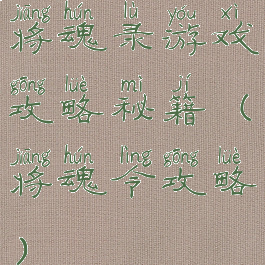 jiāng hún lù yóu xì
将魂录游戏
gōng lüè mì jí
攻略秘籍（
jiāng hún lìng gōng lüè
将魂令攻略
）